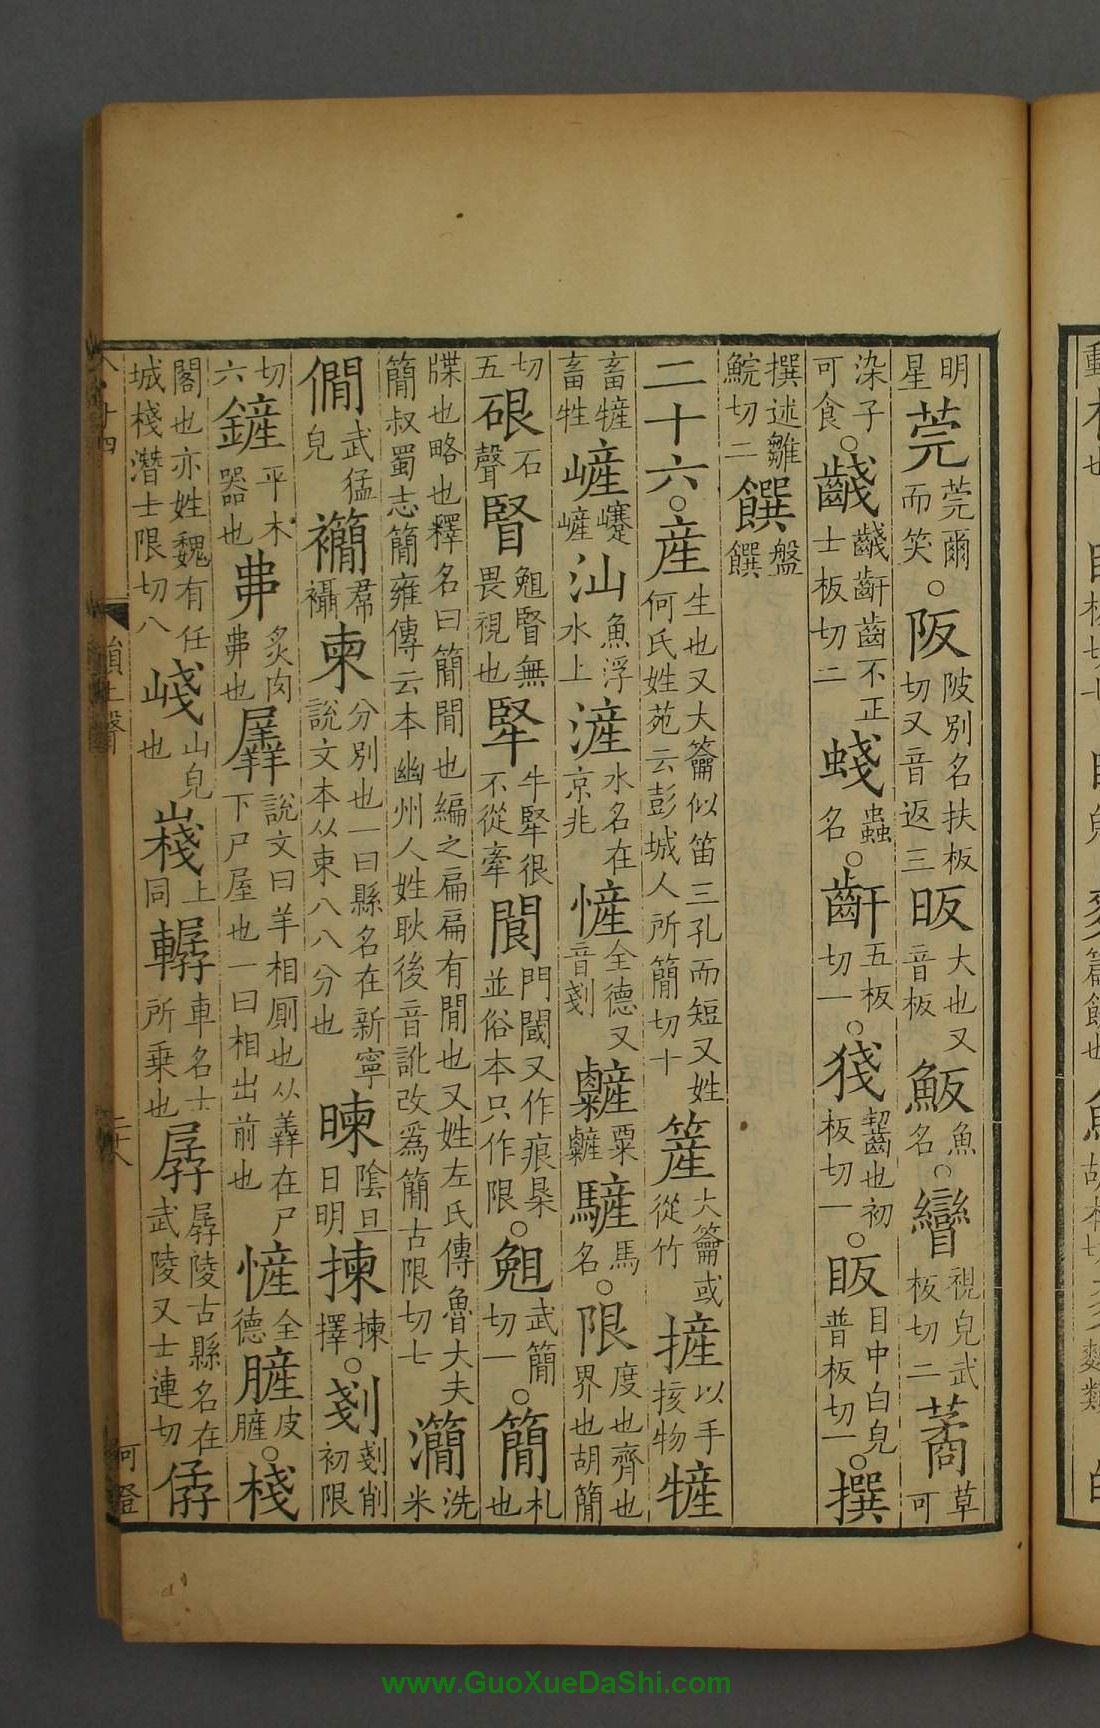 明星莞莞爾而笑○阪陂別名扶板切又音返三昄大也又音板魬魚名○矕視皃武板切二䓣草可
染子可食○齴齴齞齒不正士板切二虥蟲名○齗五板切一○㹽齧也初板切一○眅目中白皃普板切一○撰
撰述雛鯇切二饌盤饌
二十六○産生也又大籥似笛三孔而短又姓何氏姓苑云彭城人所簡切十簅大籥或從竹摌以手㧡物㹌
畜㹌畜牲嵼嵼㠾汕魚浮水上滻水名在京兆㦃全德又音剗䊲粟䊲驏馬名○限度也齊也界也胡簡
切五硍石聲䝨䝨䚈無畏視也掔牛掔很不從牽䦘門閾又作痕㮓並俗本只作限○䚈武簡切一○簡札也
牒也略也釋名曰簡閒也編之扁扁有閒也又姓左氏傳魯大夫簡叔蜀志簡雍傳云本幽州人姓耿後音訛改爲簡古限切七瀾洗米
僩武猛皃襉帬襵柬分別也一曰縣名在新寧說文本从束八八分也暕陰旦日明揀揀擇○剗剗削初限
切六鏟平木器也弗炙肉弗也羼說文曰羊相厠也从羴在尸下尸屋也一曰相出前也㦃全德䑎皮䑎○棧
閣也亦姓魏有任城棧潛士限切八㟞山皃也嶘上同轏車名士所乗也孱孱陵古縣名在武陵又士連切僝
www.GuoXueDaShi.com